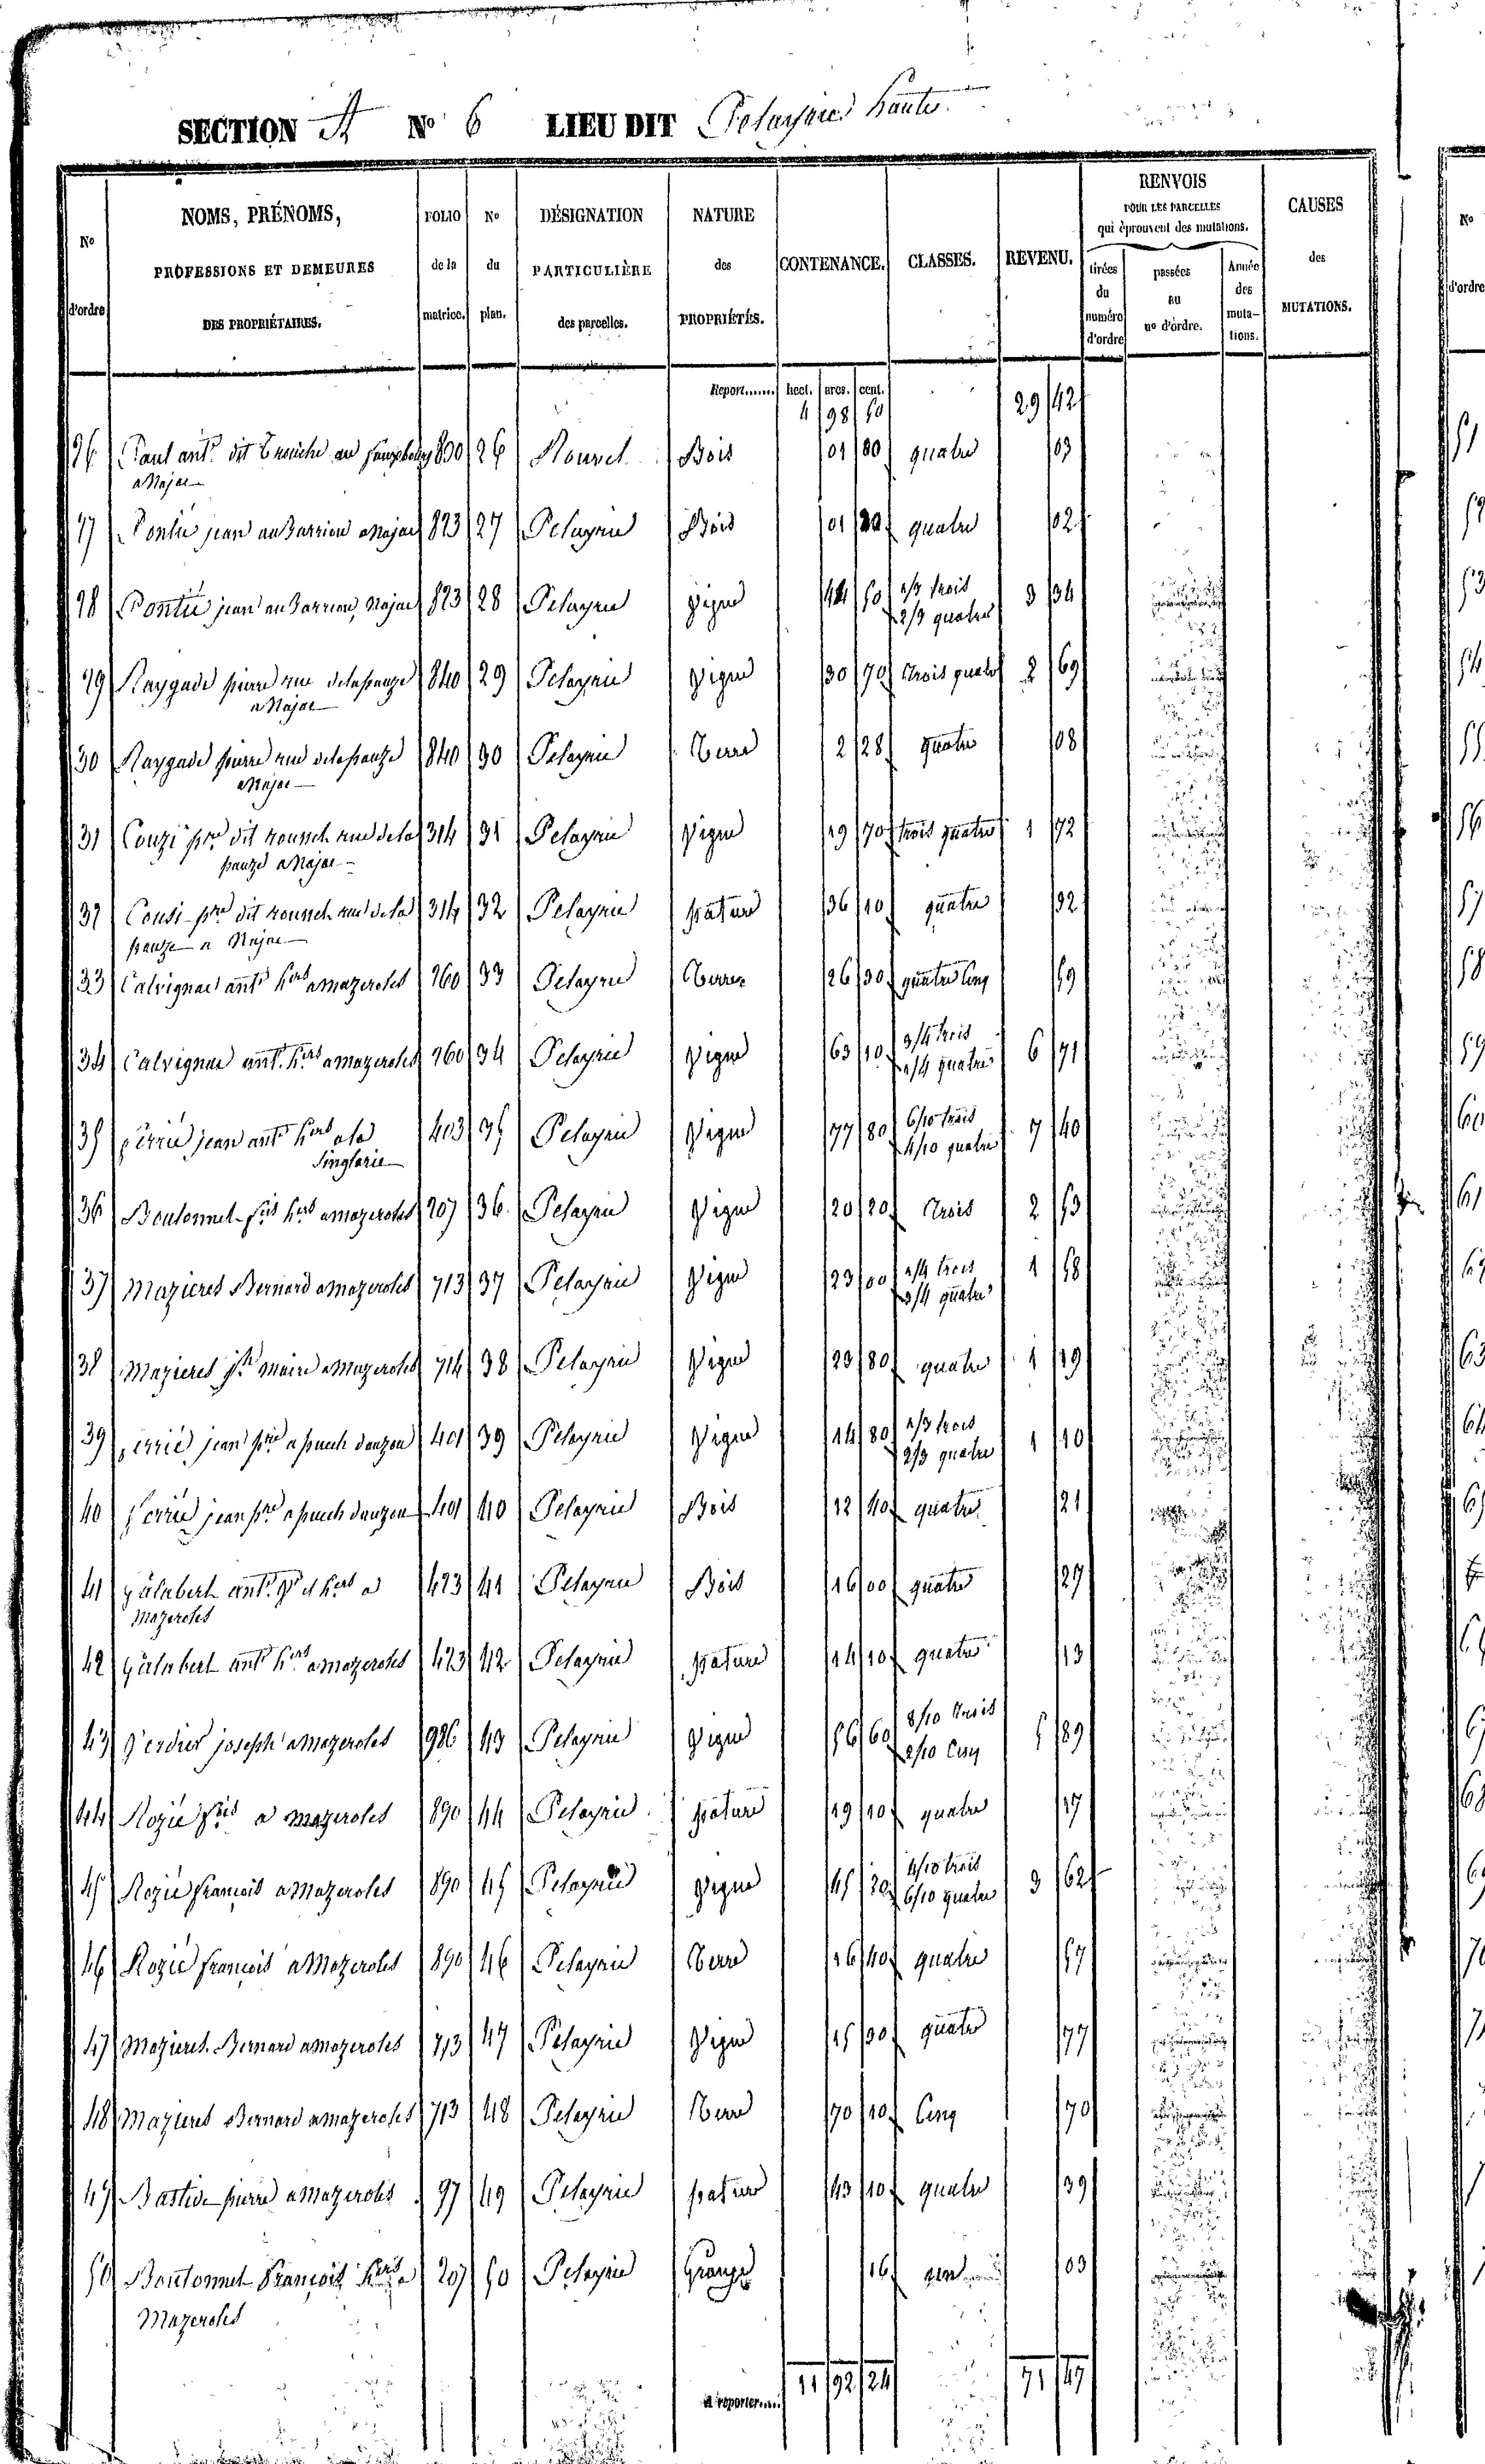 SECTION A N° 6 LIEU DIT Pelayrie haute
N° d'ordre
NOMS, PRÉNOMS, PROFESSIONS ET DEMEURES DES PROPRIÉTAIRES.
FOLIO de la matrice.
N° du plan.
DÉSIGNATION PARTICULIÈRE des parcelles.
NATURE des PROPRIÉTÉS.
CONTENANCE.
CLASSES.
REVENU.
RENVOIS POUR LES PARCELLES qui éprouvent des mutations.
tirées du numéro d'ordre
passées au n° d'ordre.
Année des mutations.
CAUSES des MUTATIONS.
Report....... hect. ares. cent.
4 98 50 29 42
26 Paul ant. dit au 830 26 Nouvel Bois 01 80 quatre 03
a Najac
27 Pontié jean au Barriou a Najac 823 27 Pelayrie Bois 01 20 quatre 02
28 Pontié jean au Barriou, Najac 823 28 Pelayrie Vigne 44 50 1/3 trois 3 34
2/3 quatre
29 Raygade pierre rue delapauze 840 29 Pelayrie Vigne 30 70 trois quatre 2 69
a Najac
30 Raygade pierre rue delapauze 840 30 Pelayrie Terre 2 28 quatre 08
a Najac
31 Couzi pre dit roussel rue dela 314 31 Pelayrie Vigne 19 70 trois quatre 1 72
pauze a Najac
32 Cousi pre dit roussel rue dela 314 32 Pelayrie pature 36 10 quatre 32
pauze a Najac
33 Calvignac ant. hers a mazeroles 260 33 Pelayrie Terre 26 30 quatre Cinq 59
34 Calvignac ant. hers a mazeroles 260 34 Pelayrie Vigne 63 10 3/4 trois 6 71
1/4 quatre
35 ferrié jean ant hers a la 403 35 Pelayrie Vigne 77 80 6/10 trois 7 40
Singlarie 4/10 quatre
36 Boutonnet fois hers a mazeroles 207 36 Pelayrie Vigne 20 20 trois 2 53
37 Mazieres Bernard a mazeroles 713 37 Pelayrie Vigne 23 00 1/4 trois 1 58
3/4 quatre
38 Mazieres maire a Mazeroles 714 38 Pelayrie Vigne 23 80 quatre 1 19
39 ferrié jean pre a puech 401 39 Pelayrie Vigne 14 80 1/3 trois 1 10
2/3 quatre
40 ferrié jean pre a puech 401 40 Pelayrie Bois 12 40 quatre 21
41 galabert ant. hers a 423 41 Pelayrie Bois 16 00 quatre 27
Mazeroles
42 galabert ant hers a mazeroles 423 42 Pelayrie pature 14 10 quatre 13
43 Verdier joseph a Mazeroles 986 43 Pelayrie Vigne 56 60 8/10 trois 5 89
2/10 Cinq
44 Rozié fois a mazeroles 890 44 Pelayrie pature 19 10 quatre 17
45 Rozié françois a Mazeroles 890 45 Pelayrie Vigne 45 20 4/10 trois 3 62
6/10 quatre
46 Rozié françois a Mazeroles 890 46 Pelayrie Terre 16 40 quatre 57
47 Mazieres Bernard a mazeroles 713 47 Pelayrie Vigne 15 30 quatre 77
48 Mazieres Bernard a mazeroles 713 48 Pelayrie Terre 70 10 Cinq 70
49 Bastide pierre a Mazeroles 97 49 Pelayrie pature 43 10 quatre 39
50 Boutonnet François hers a 207 50 Pelayrie Grange 16 03
Mazeroles
A reporter..... 11 92 24 71 47